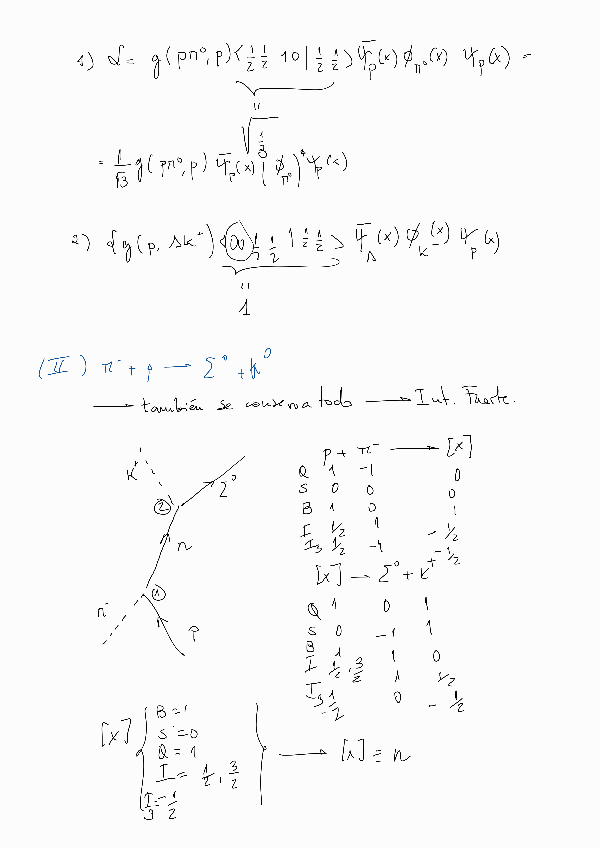 1) L = g(pπ⁰,p) <½ ½ 1 0 | ½ ½> Ψ̄p(x) ϕπ⁰(x) Ψp(x) =
"
√⅓
= 1/√3 g(pπ⁰,p) Ψ̄p(x) (ϕπ⁰)* Ψp(x)
2) L g(p, ΛK⁺) <00 ½ ½ | ½ ½> Ψ̄Λ(x) ϕK⁻(x) Ψp(x)
"
1
(II) π⁻ + p → Σ⁰ + K⁰
→ también se conserva todo → Int. Fuerte.
p + π⁻ → [X]
Q 1 -1 0
S 0 0 0
B 1 0 1
I ½ 1 -½
I₃ ½ -1 -½
[X] → Σ⁰ + K⁺
Q 1 0 1
S 0 -1 1
B 1 1 0
I ½, 3/2 1 ½
I₃ -½ 0 -½
K⁺
Σ⁰
②
n
①
π⁻
p
[X] { B=1
S=0
Q=1
I = ½, 3/2
I₃ = -½
} → [X] ≡ n